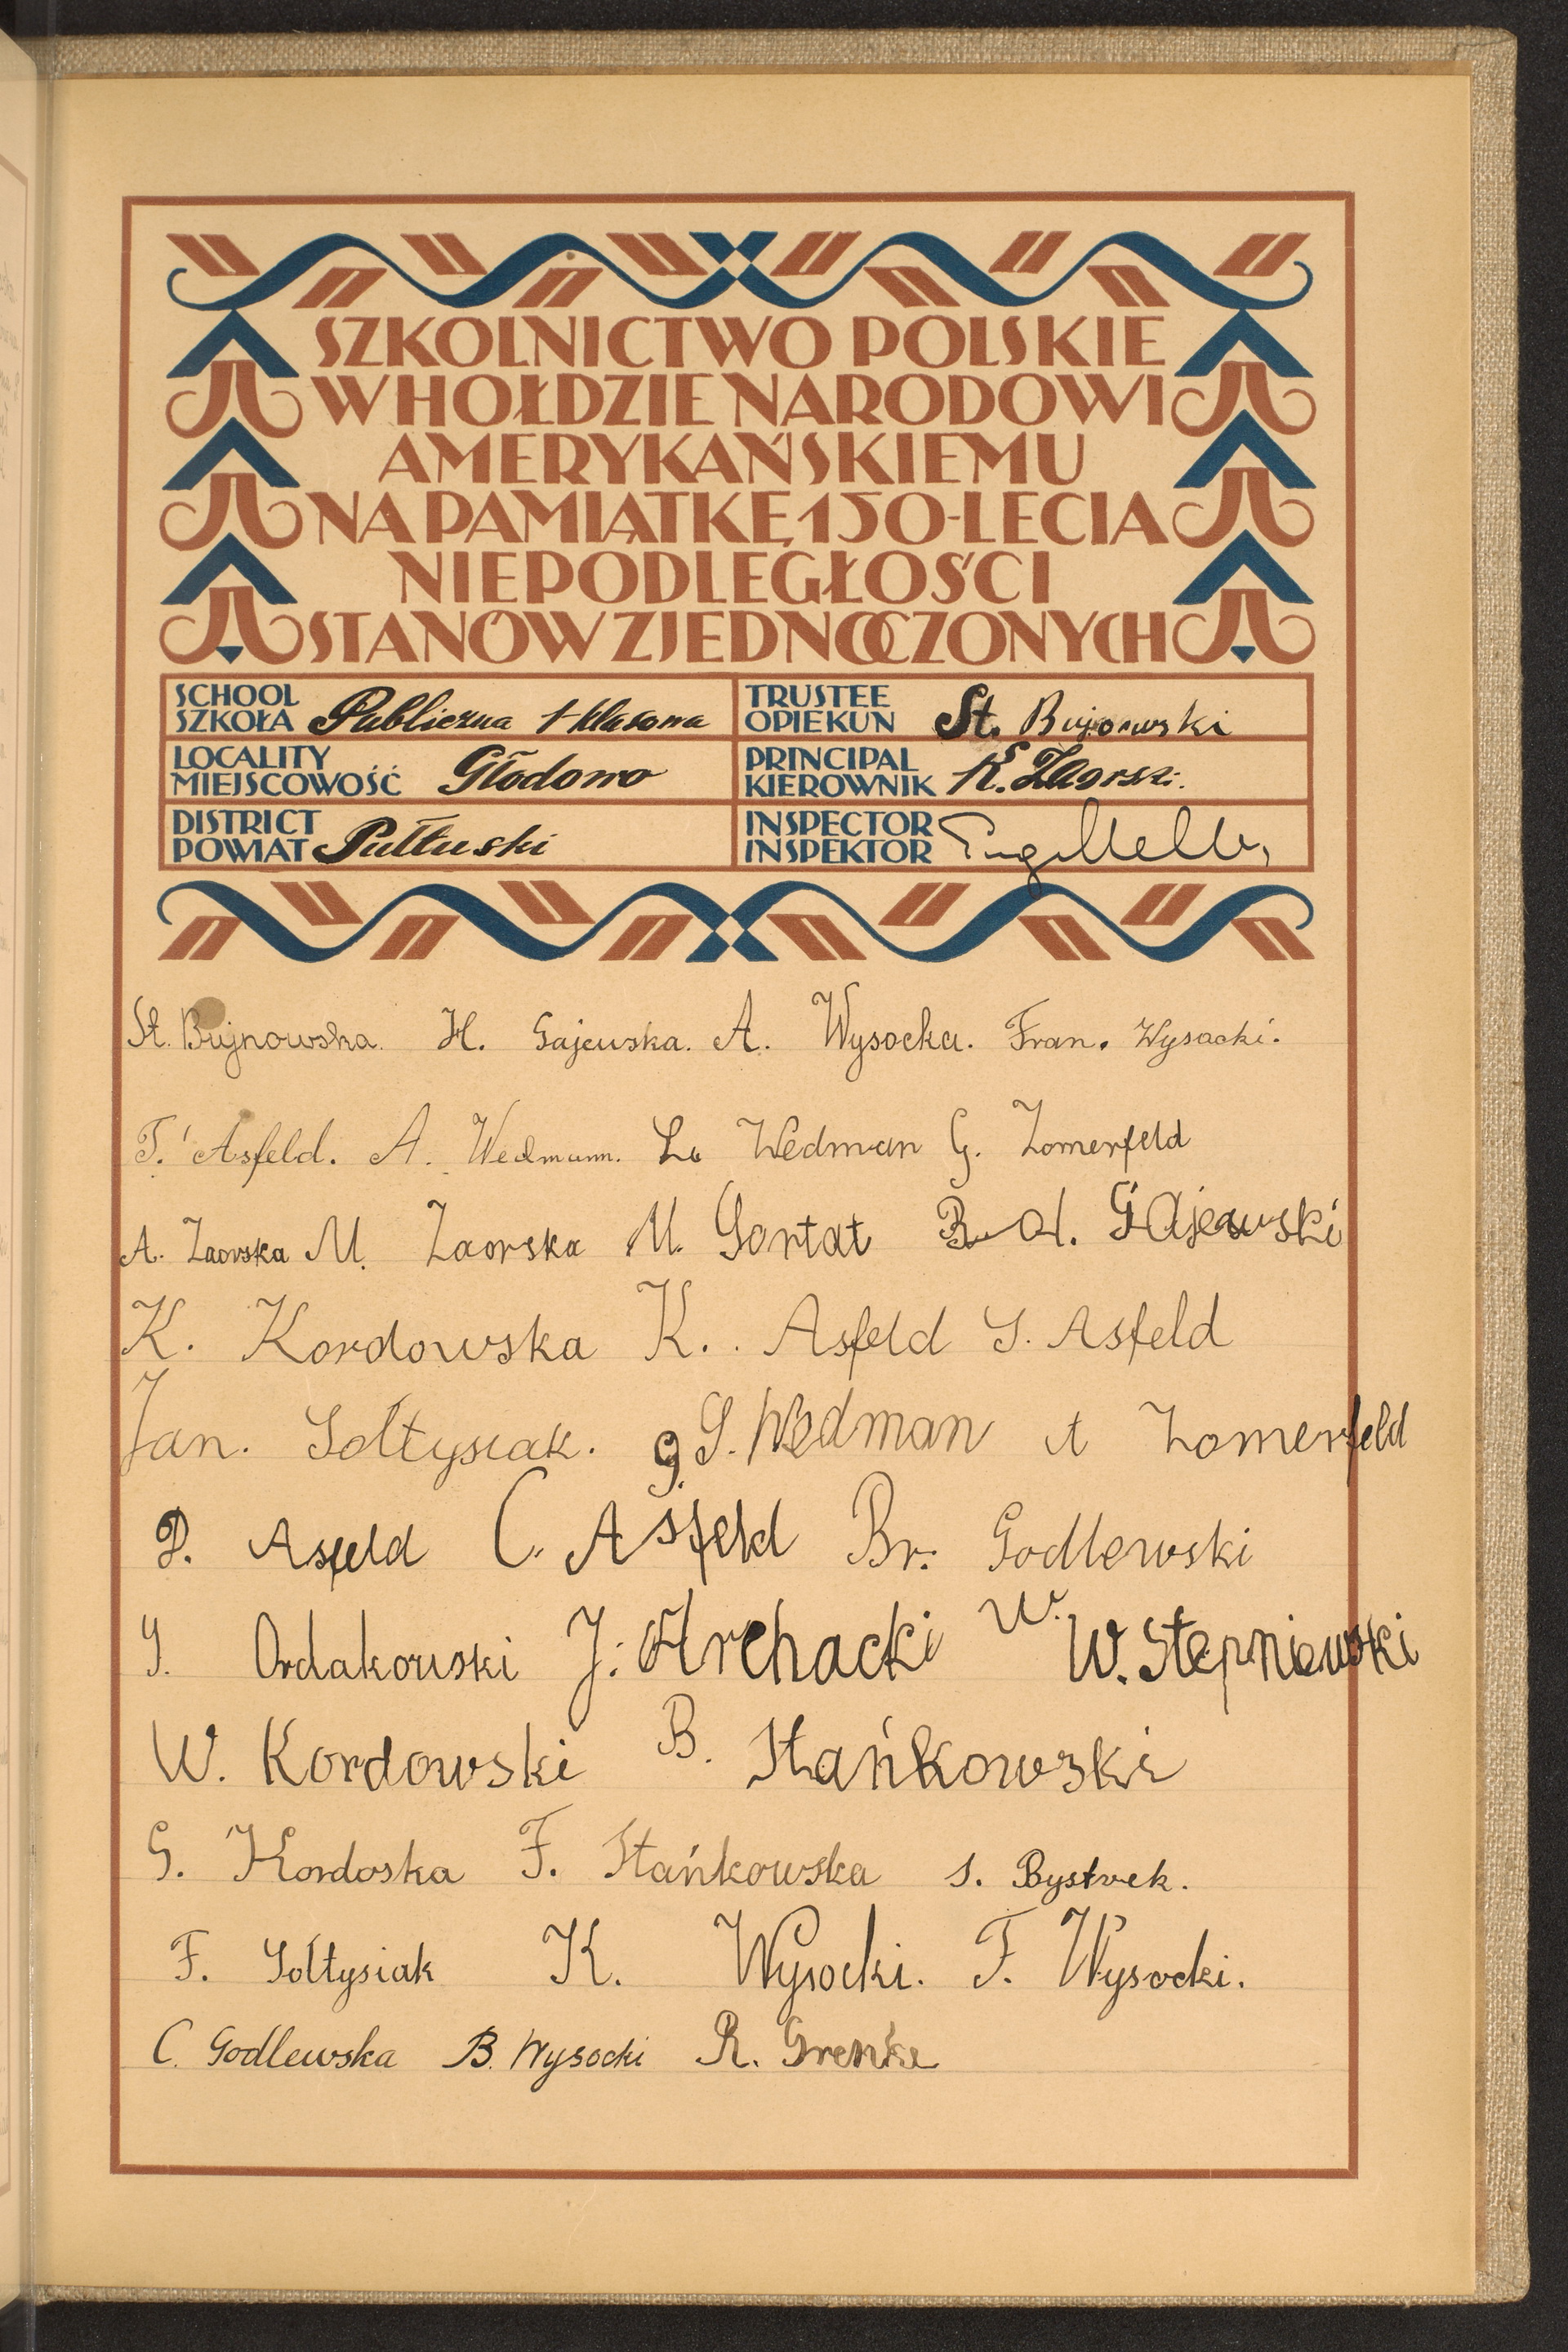 SZKOLNICTWO POLSKIE
W HOŁDZIE NARODOWI
AMERYKAŃSKIEMU
NA PAMIĄTKĘ 150-LECIA
NIEPODLEGŁOŚCI
STANÓW ZJEDNOCZONYCH
SCHOOL
SZKOŁA Publiczna 1-klasowa
TRUSTEE
OPIEKUN St. Bujnowski
LOCALITY
MIEJSCOWOŚĆ Głodowo
PRINCIPAL
KIEROWNIK K. Zaorski.
DISTRICT
POWIAT Pułtuski
INSPECTOR
INSPEKTOR
St. Bujnowska. H. Gajewska. A. Wysocka. Fran. Wysocki.
T. Asfeld. A. Wedmann. L. Wedman G. Zomerfeld
A. Zaorska M. Zaorska M. Gortat R. Gajewski
K. Kordowska K. Asfeld S. Asfeld
Jan. Sołtysiak. g. S. Wedman A Zomerfeld
P. Asfeld C. Asfeld Br. Godlewski
S. Ordakowski J. Archacki W. W. Stepniewski
W. Kordowski B. Stańkowski
G. Kordoska F. Stańkowska S. Bystrek.
F. Sołtysiak K. Wysocki. F. Wysocki.
C. Godlewska B. Wysocki R. Grenke